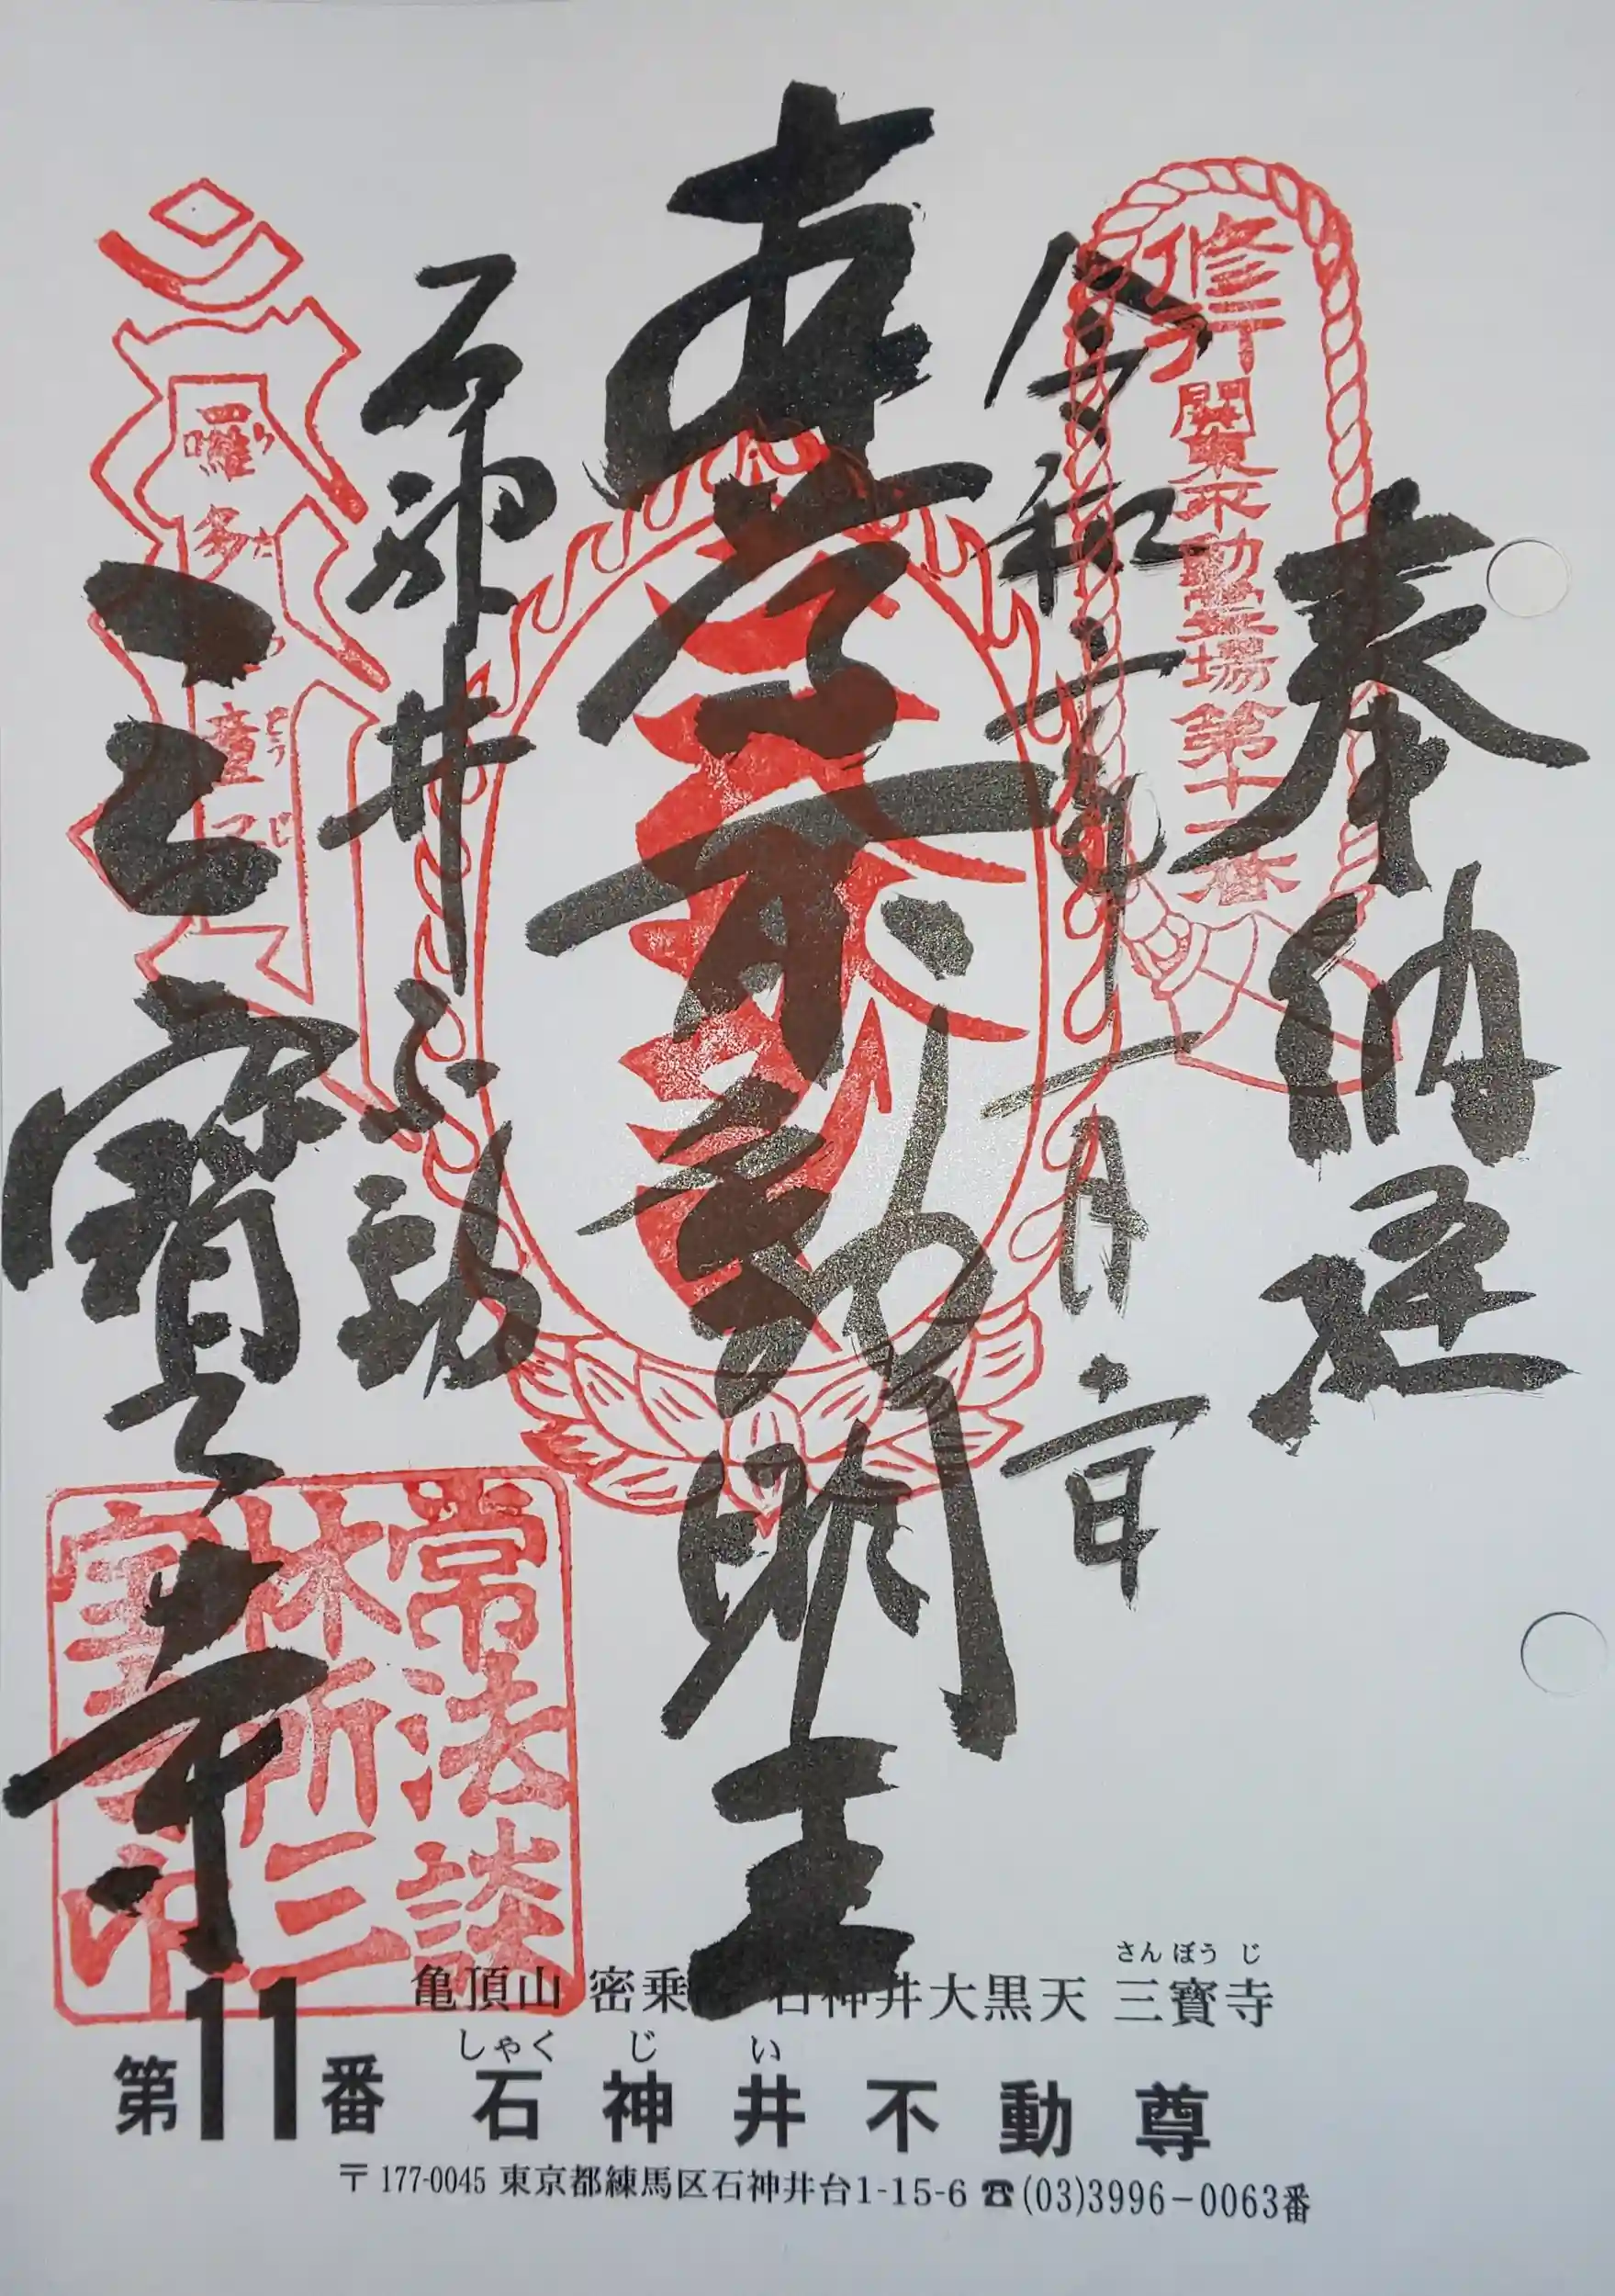 奉納経
修行
關東不動霊場第十一番
令和二年
不動明王
石神井不動
三寶寺
囉多
童子
常法談
林所三
寶寺印
さんぽうじ
亀頂山 密乗 石神井大黒天 三寶寺
しゃくじい
第11番 石神井不動尊
〒177-0045 東京都練馬区石神井台1-15-6 ☎(03)3996−0063番